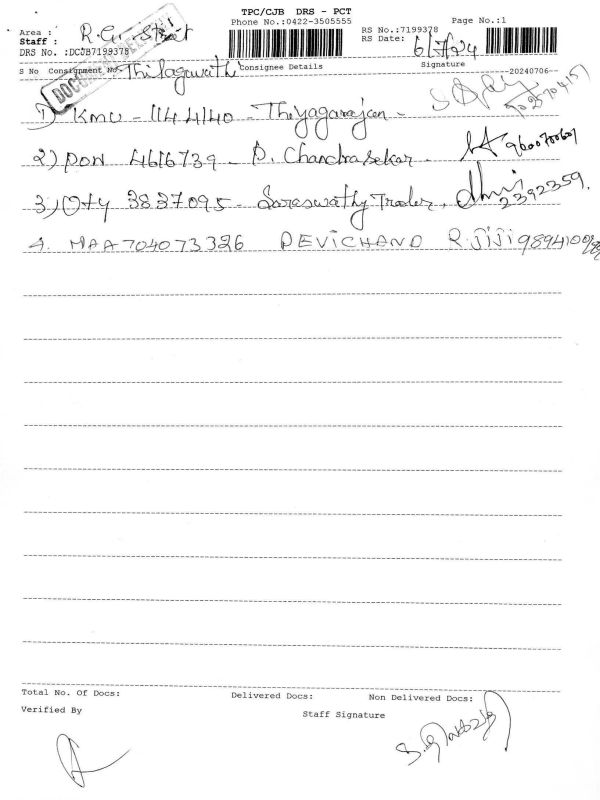 TPC/CJB DRS - PCT
Phone No.:0422-3505555
Page No.:1
Area : R.G. Street
Staff :
DRS No. :DCJB7199378
RS No.:7199378
RS Date: 6/7/24
S No Consignment No Consignee Details Signature
Thilagavathi
20240706
1) KMU - 1144140 - Thiyagarajan -
2) PON 4616739 - P. Chandrasekar - 9600700607
3) 3837095 - Saraswathy Trader, 2392359.
4. MAA704073326 DEVICHAND R.JIJI
Total No. Of Docs: Delivered Docs: Non Delivered Docs:
Verified By Staff Signature